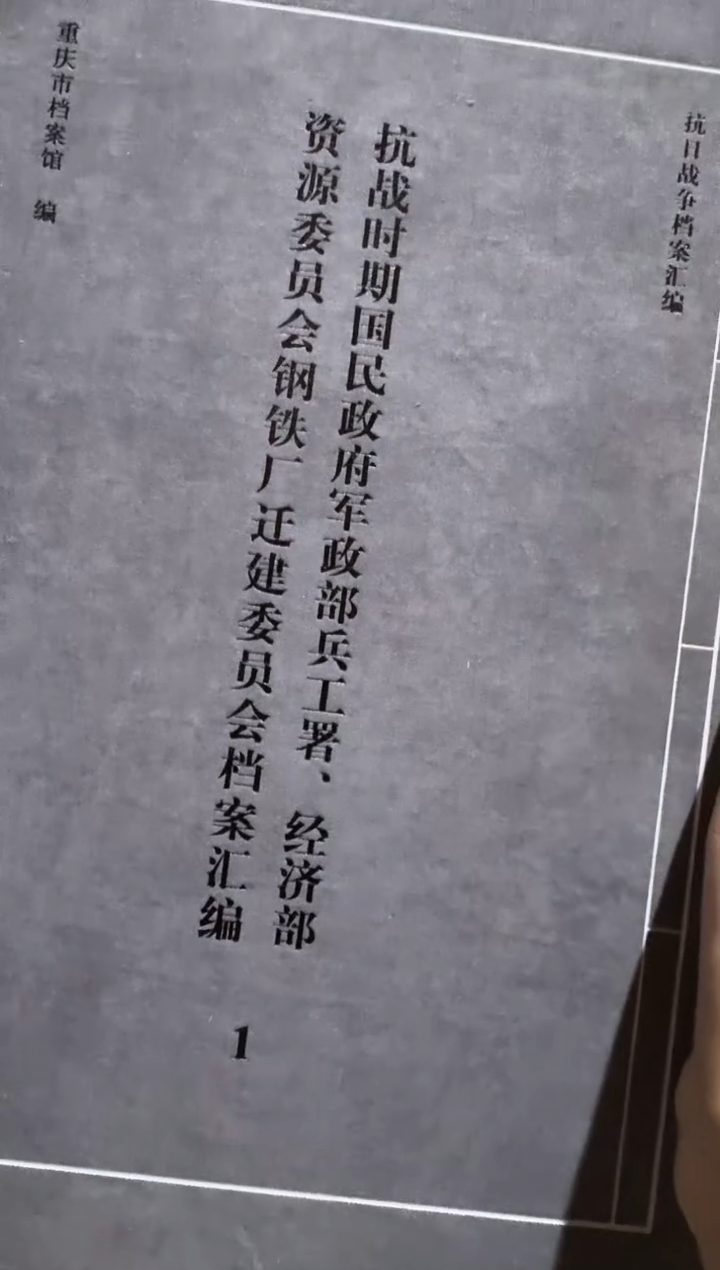 抗日战争档案汇编
抗战时期国民政府军政部兵工署、经济部
资源委员会钢铁厂迁建委员会档案汇编 1
重庆市档案馆 编